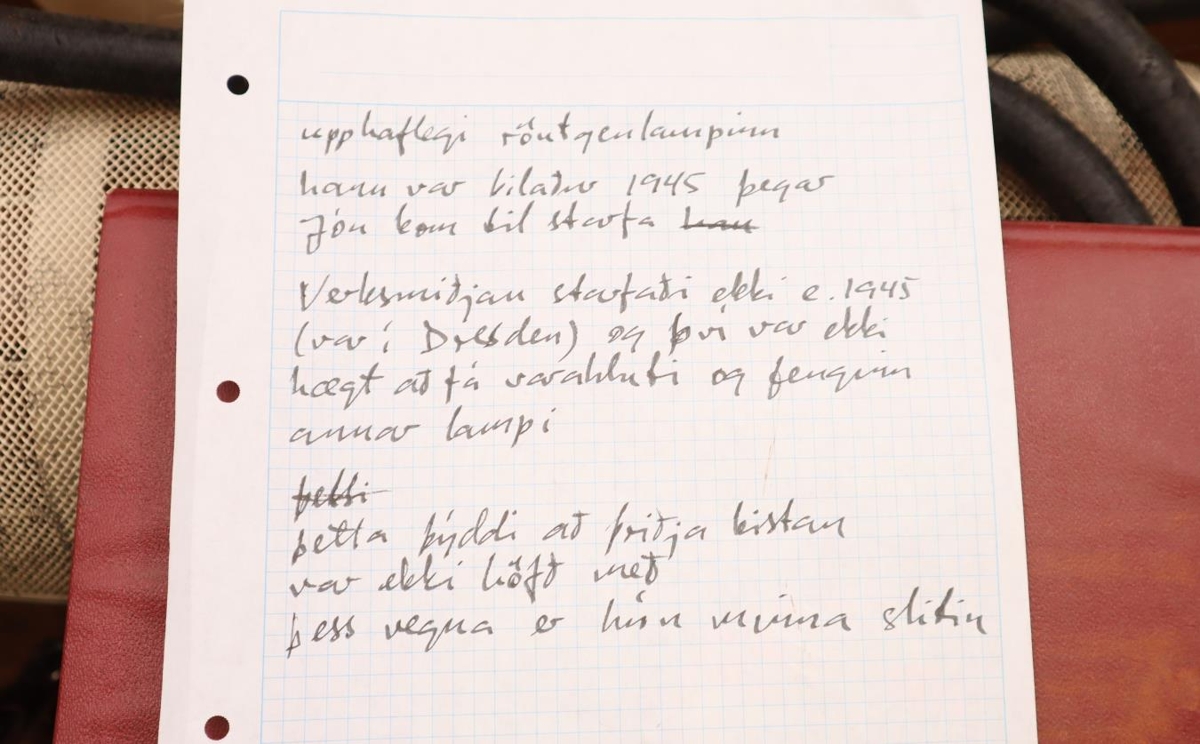 upphaflegi röntgenlampinn
hann var bilaður 1945 þegar
Jón kom til starfa han
Verksmiðjan starfaði ekki e. 1945
(var í Dresden) og því var ekki
hægt að fá varahluti og fenginn
annar lampi
þetti
þetta þýddi að þriðja kistan
var ekki höfð með
þess vegna er hún minna slitin